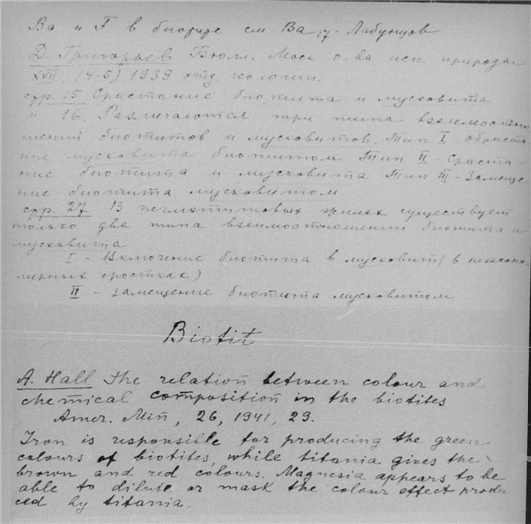 Ba и F в биотите см Ba, γ- Лабунцов
Д. Григорьев Бюлл. Моск о-ва исп природы
XVII, (4-5) 1939 отд. геологии.
стр. 15 Срастание биотита и мусковита
" 16. Различаются три типа взаимоотно
шений биотитов и мусковитов. Тип I обраста
ние мусковита биотитом Тип II Сраста
ние биотита и мусковита Тип III - Замеще
ние биотита мусковитом.
стр. 27 В пегматитовых жилах существует
только два типа взаимоотношений биотита и
мусковита
I - Включение биотита в мусковит (в незаконо
мерных сростках)
II - Замещение биотита мусковитом
Biotit
A. Hall The relation between colour and
chemical composition in the biotites
Amer. Min, 26, 1941, 29.
Iron is responsible for producing the green
colours of biotites, while titania gives the
brown and red colours. Magnesia appears to be
able to dilute or mask the colour effect produ
ced by titania.